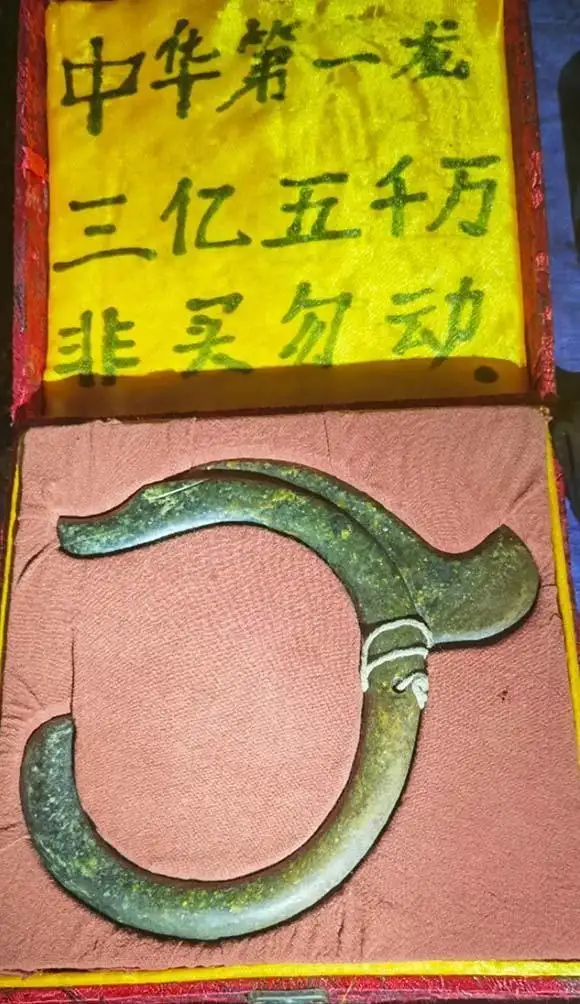 中华第一龙
三亿五千万
非买勿动.